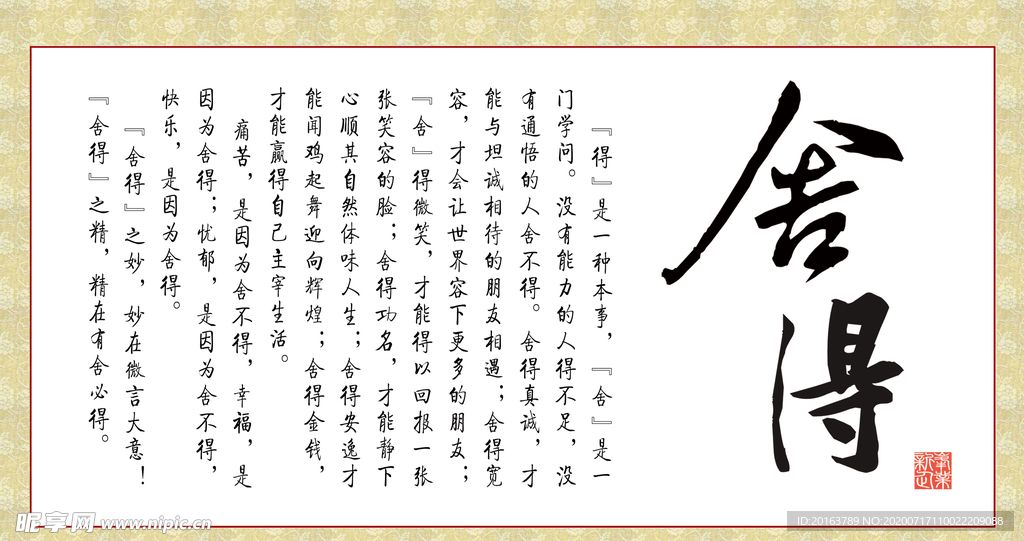 舍得
『得』是一种本事，『舍』是一
门学问。没有能力的人得不足，没
有通悟的人舍不得。舍得真诚，才
能与坦诚相待的朋友相遇；舍得宽
容，才会让世界容下更多的朋友；
『舍』得微笑，才能得以回报一张
张笑容的脸；舍得功名，才能静下
心顺其自然体味人生；舍得安逸才
能闻鸡起舞迎向辉煌；舍得金钱，
才能赢得自己主宰生活。
痛苦，是因为舍不得，幸福，是
因为舍得；忧郁，是因为舍不得，
快乐，是因为舍得。
『舍得』之妙，妙在微言大意！
『舍得』之精，精在有舍必得。
昵享网 www.nipic.cn
ID:20163789 NO:20200717110022209088